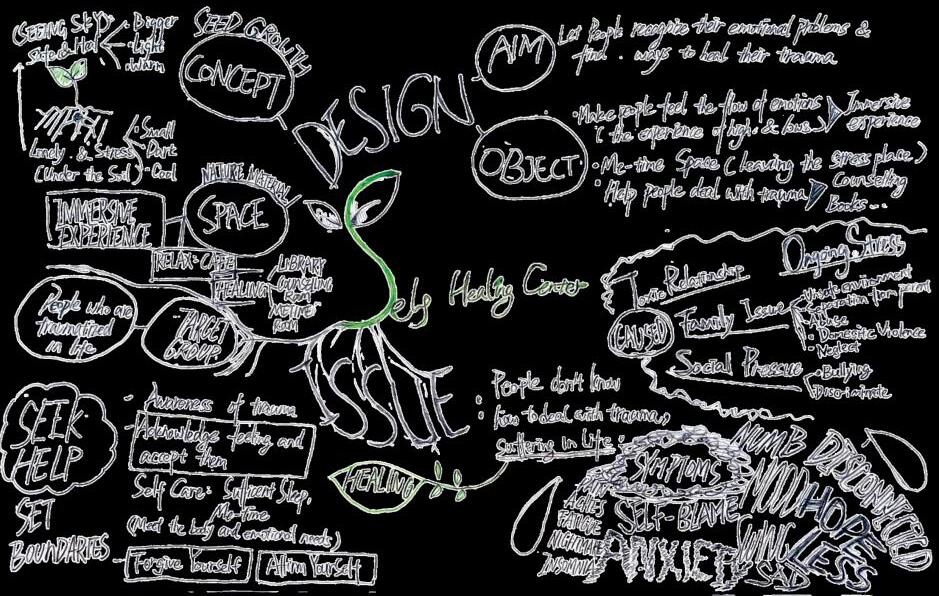 SEEING SKY
Safe & Hal
Bigger
Light
Warm
Small
Dart
Cool
Lonely & Stress
(Under the Soil)
SEED GROWTH
CONCEPT
DESIGN
AIM
Let People recognize their emotional problems &
find ways to heal their trauma
OBJECT
Make people feel the flow of emotions
(the experience of high & lows)
Immersive
experience
Me-time Space (leaving the stress place)
Help people deal with trauma
Counselling
Books...
NATURE MATERIAL
SPACE
IMMERSIVE
EXPERIENCE
RELAX: CAFE
HEALING
LIBRARY
COUNSELING
ROOM
METIME
ROOM
People who are
traumatized
in life
TARGET
GROUP
Self Healing Center
ISSUE
People don't know
how to deal with trauma,
Suffering in Life:
CAUSED
Toxic Relationship
Family Issue
Social Pressure
Ongoing Stress
Separation from parent
Abuse
Domestic Violence
Neglect
Bullying
Discriminate
SEEK
HELP
SET
BOUNDARIES
Awareness of trauma
Acknowledge feeling and
accept them
Self Care: Sufficient Sleep,
Me-time
(Meet the body and emotional needs)
Forgive Yourself
Affirm Yourself
HEALING
SYMPTOMS
SELF-BLAME
ACHES
FATIGUE
NIGHTMARE
INSOMNIA
ANXIETY
NUMB
MOOD
SWING
SAD
HOPE
LESS
DISCONNECTED